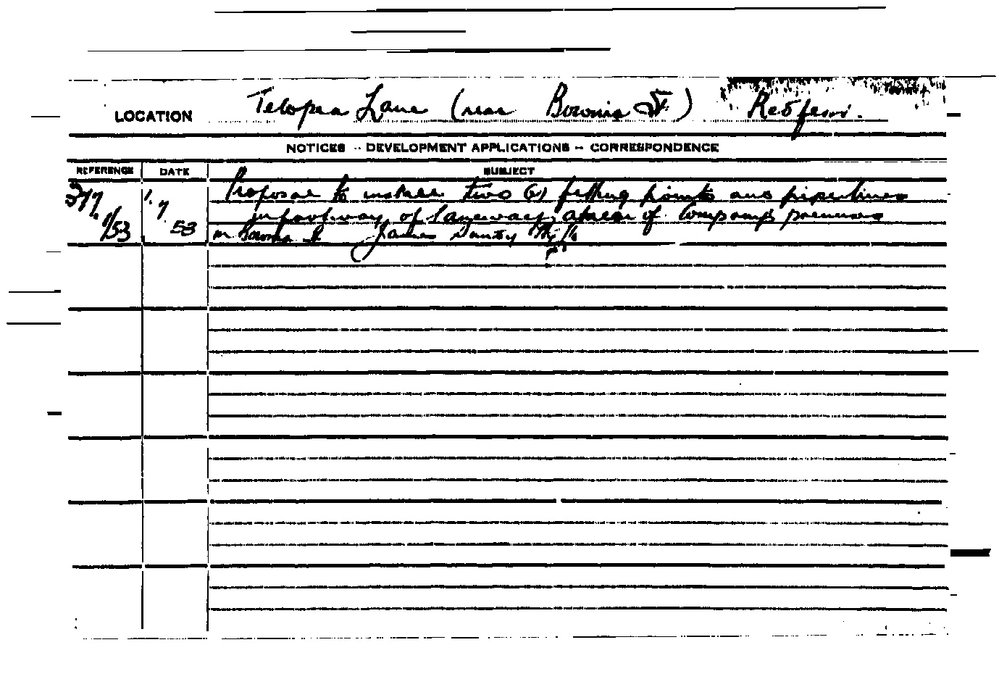 LOCATION Telopea Lane (near Bourke St) Redfern.
NOTICES - DEVELOPMENT APPLICATIONS - CORRESPONDENCE
REFERENCE DATE SUBJECT
1.7.53 Proposal to install two (2) filling points and pipelines
in pathway of laneway, at rear of Company's premises
in St James Pty Ltd